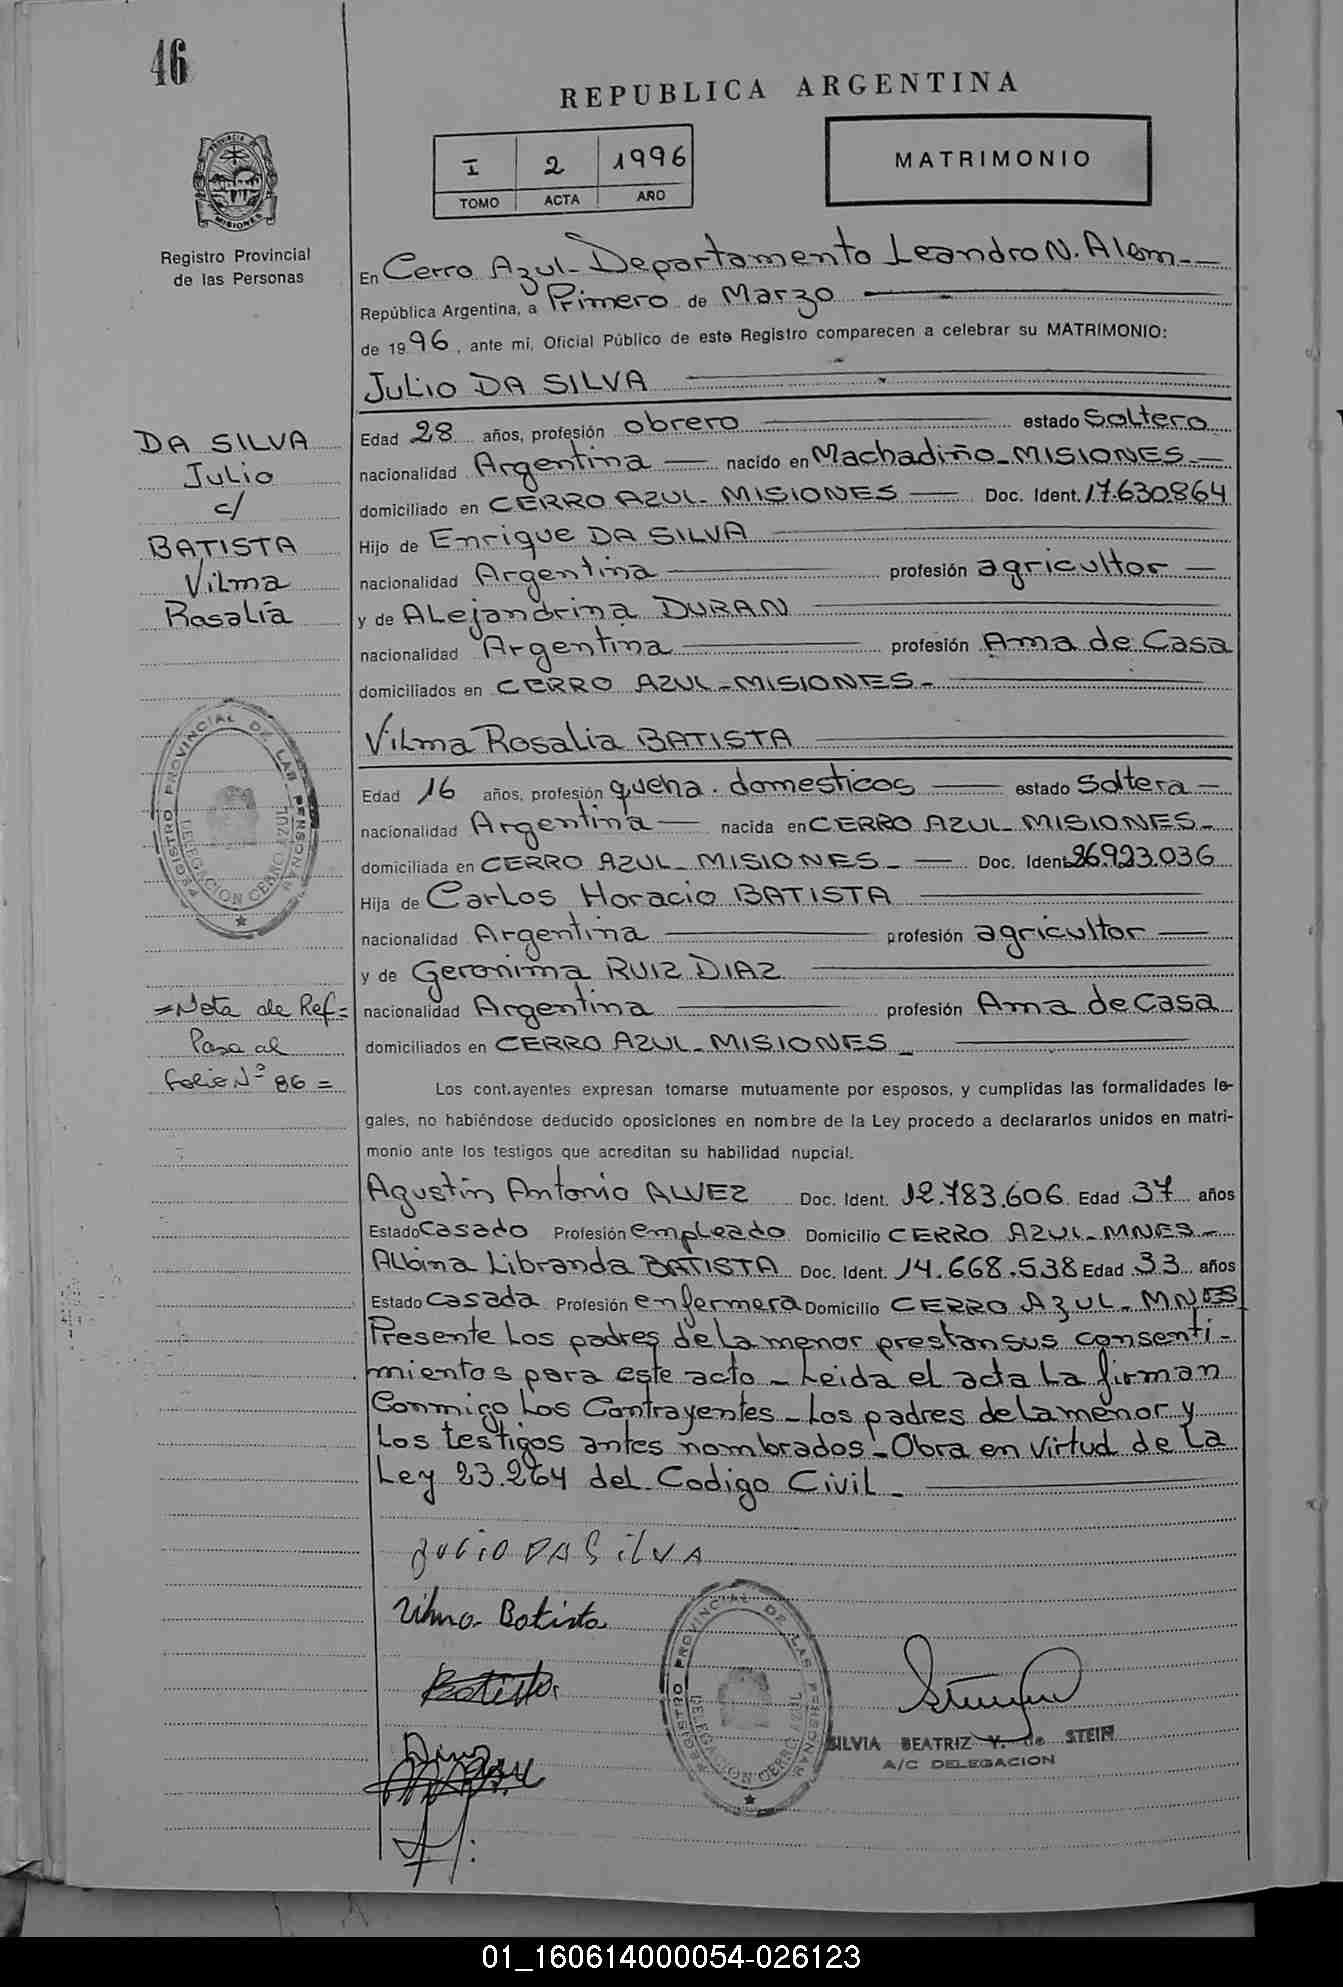 46
REPUBLICA ARGENTINA
PROVINCIA
MISIONES
I 2 1996
TOMO ACTA AÑO
MATRIMONIO
Registro Provincial
de las Personas
En Cerro Azul - Departamento Leandro N. Alem -
República Argentina, a Primero de Marzo
de 1996, ante mí, Oficial Público de este Registro comparecen a celebrar su MATRIMONIO:
JULIO DA SILVA
DA SILVA
Julio
c/
BATISTA
Vilma
Rosalía
Edad 28 años, profesión obrero estado Soltero
nacionalidad Argentina nacido en Machadiño - MISIONES -
domiciliado en CERRO AZUL - MISIONES Doc. Ident. 17.630.864
Hijo de Enrique DA SILVA
nacionalidad Argentina profesión agricultor
y de ALejandrina DURAN
nacionalidad Argentina profesión Ama de Casa
domiciliados en CERRO AZUL - MISIONES -
Vilma Rosalia BATISTA
Edad 16 años, profesión queha. domesticos estado Soltera -
nacionalidad Argentina nacida en CERRO AZUL MISIONES -
domiciliada en CERRO AZUL - MISIONES - Doc. Ident. 26.923.036
Hija de Carlos Horacio BATISTA
nacionalidad Argentina profesión agricultor
y de Geronima RUIZ DIAZ
nacionalidad Argentina profesión Ama de Casa
domiciliados en CERRO AZUL - MISIONES -
REGISTRO PROVINCIAL DE LAS PERSONAS
DELEGACION CERRO AZUL
= Nota de Ref =
Pasa al
folio Nº 86 =
Los cont.ayentes expresan tomarse mutuamente por esposos, y cumplidas las formalidades le-
gales, no habiéndose deducido oposiciones en nombre de la Ley procedo a declararlos unidos en matri-
monio ante los testigos que acreditan su habilidad nupcial.
Agustín Antonio ALVEZ Doc. Ident. 12.783.606 Edad 37 años
Estado Casado Profesión empleado Domicilio CERRO AZUL - MNES -
Albina Libranda BATISTA Doc. Ident. 14.668.538 Edad 33 años
Estado Casada Profesión enfermera Domicilio CERRO AZUL - MNES
Presente Los padres de La menor prestan sus consenti-
mientos para este acto - Leida el acta La firman
Conmigo Los Contrayentes - Los padres de La menor y
Los testigos antes nombrados - Obra en virtud de La
Ley 23.264 del Codigo Civil -
JULIO DA SILVA
Vilma Batista
Batista
REGISTRO PROVINCIAL DE LAS PERSONAS
DELEGACION CERRO AZUL
SILVIA BEATRIZ V. de STEIN
A/C DELEGACION
01_160614000054-026123